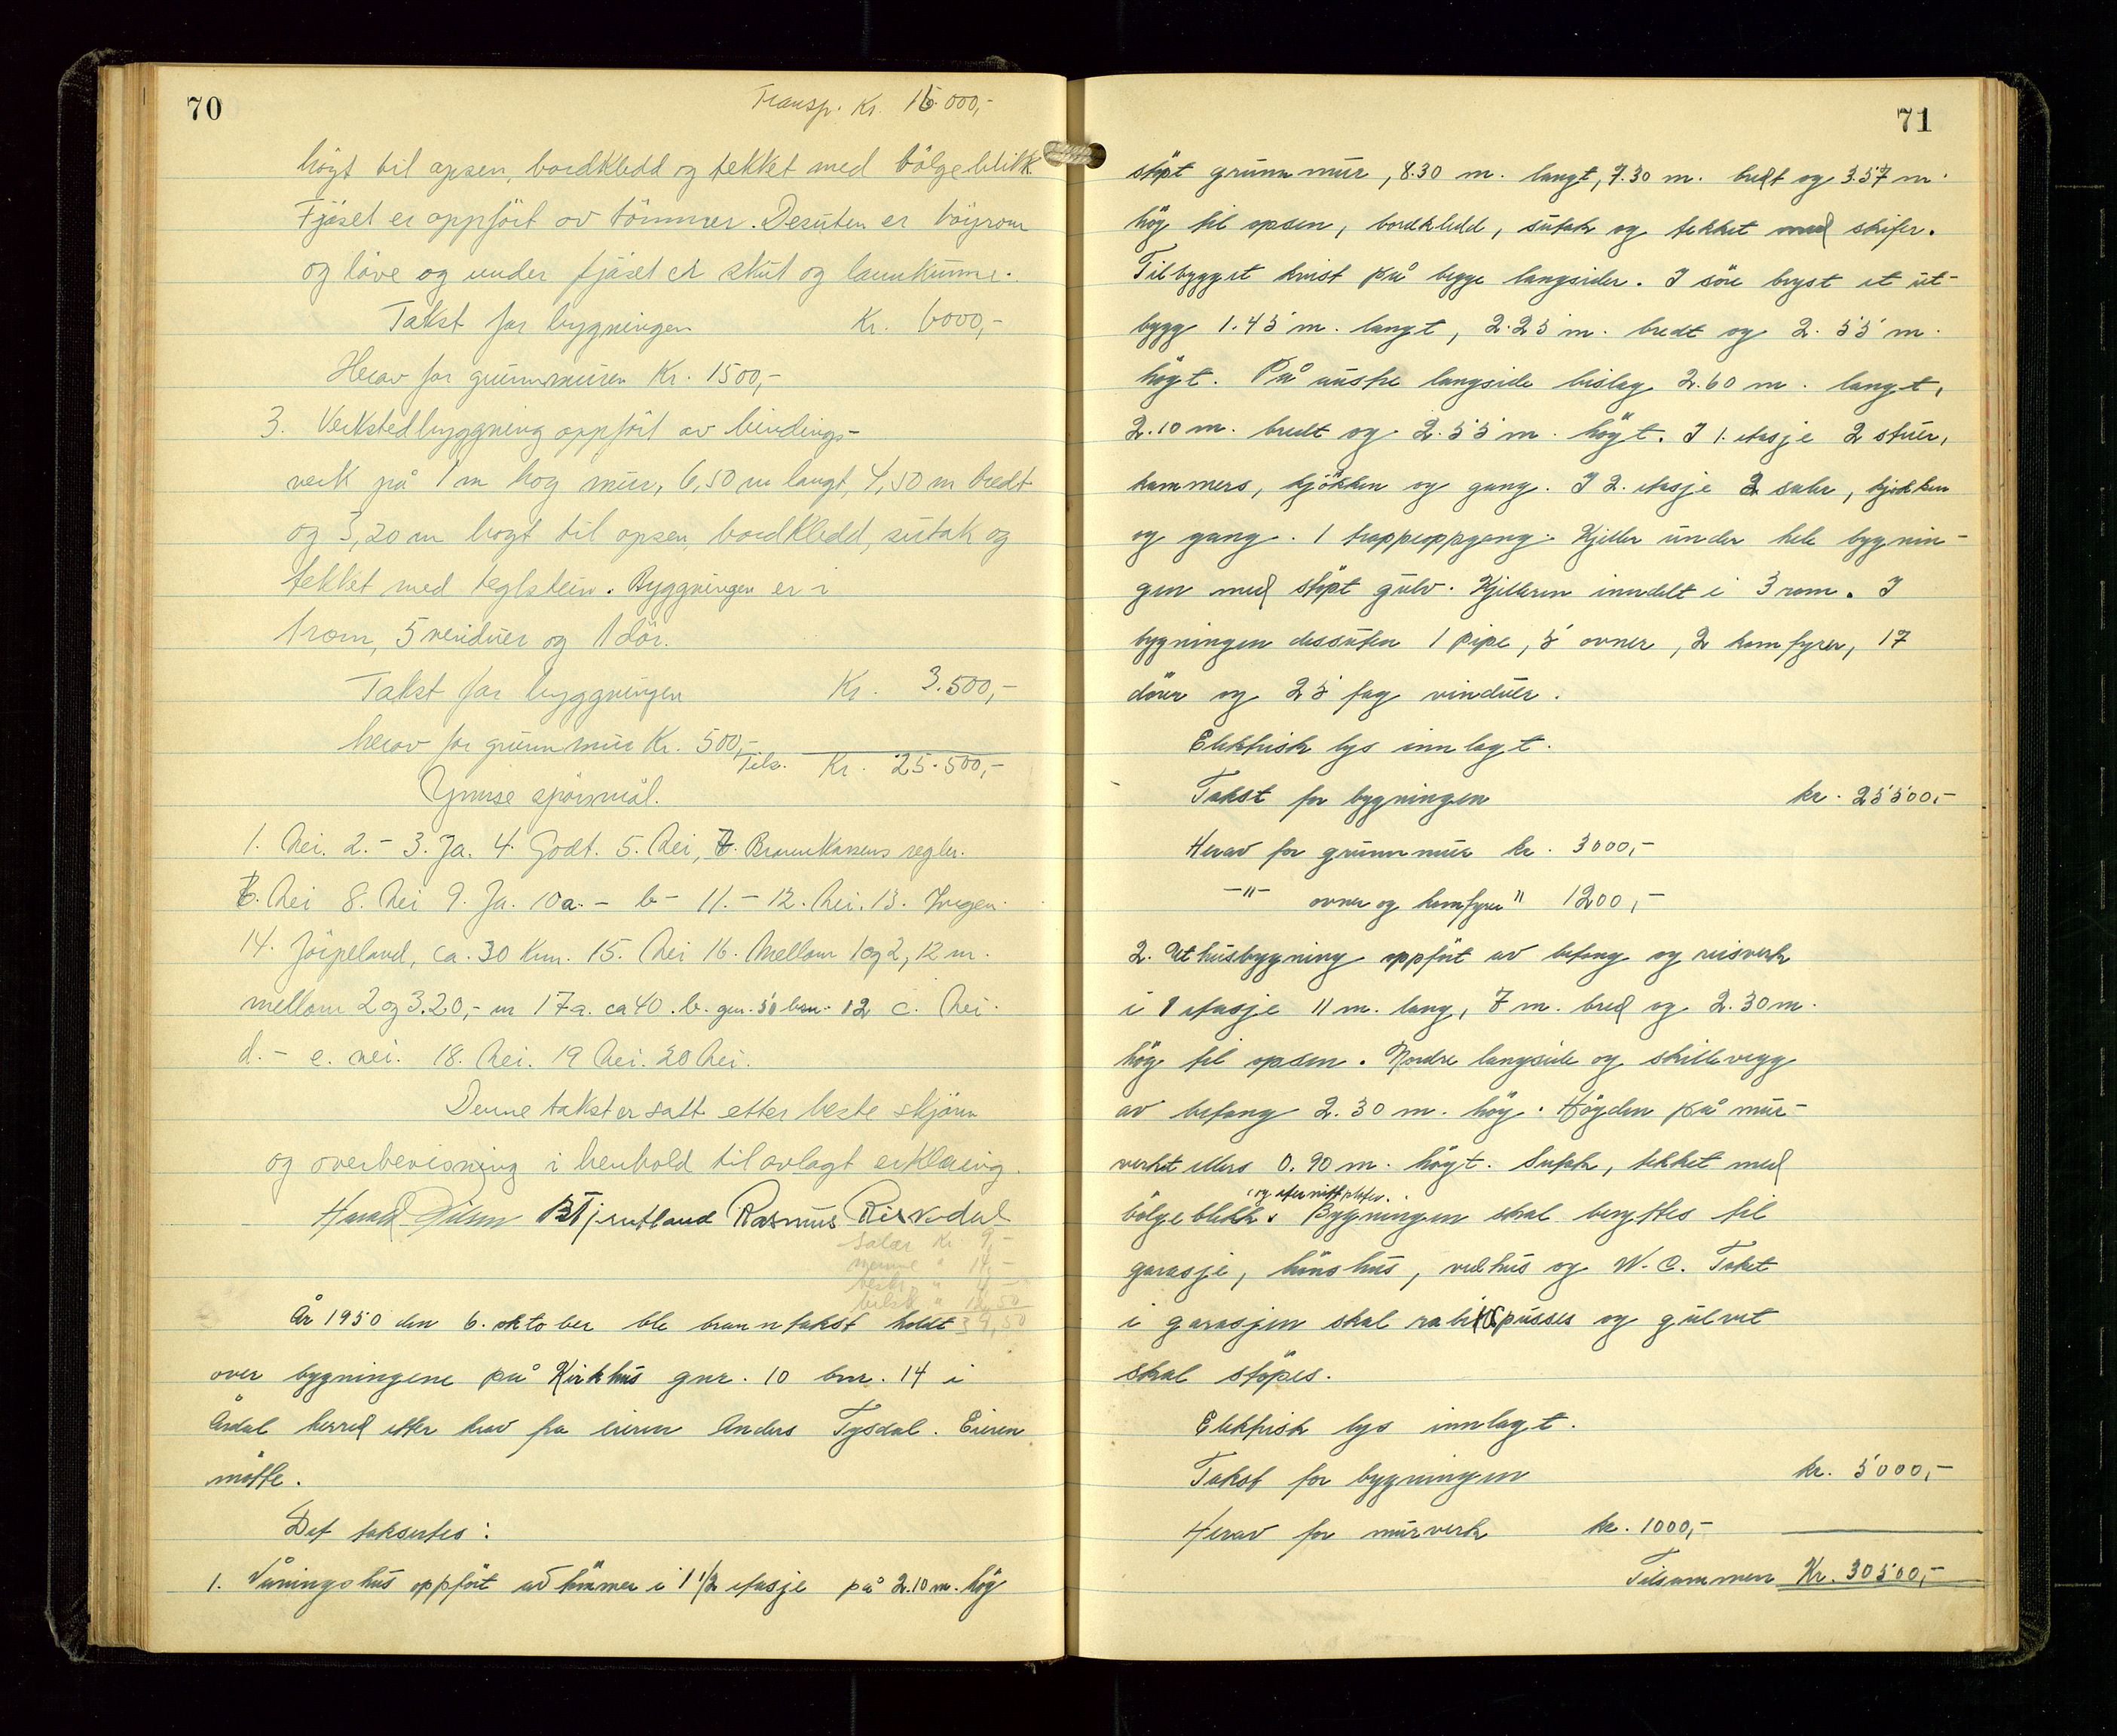 70
Transp. Kr. 16.000,-
högt til opsen, bordkledd og tekket med bölgeblikk.
Fjöset er oppfört av tömmer. Desuten er höyrom
og löve og under fjöset er skut og lannkumme.
Takst for bygningen Kr. 6000,-
Herav for grunnmuren Kr. 1500,-
3. Verkstedbyggning oppfört av bindings-
verk på 1 m hog mur, 6,50 m langt, 4,50 m bredt
og 3,20 m hogt til opsen, bordkledd, sutak og
tekket med teglstein. Byggningen er i
1 rom, 5 vinduer og 1 dör.
Takst for byggningen Kr. 3.500,-
herav for grunnmur Kr. 500,-
Tils. Kr. 25.500,-
Ymse spörsmål.
1. Nei. 2. - 3. Ja. 4. Godt. 5. Nei, 7. Brannkassens regler.
6. Nei 8. Nei 9. Ja. 10a. - b - 11. - 12. Nei. 13. Ingen.
14. Jörpeland, ca. 30 km. 15. Nei 16. Mellom 1 og 2, 12 m.
mellom 2 og 3. 20,- m 17a. ca 40. b. gm. 50 bm. 12 c. Nei.
d. - e. nei. 18. Nei. 19 Nei. 20 Nei.
Denne takst er satt etter beste skjönn
og overbevisning i henhold til avlagt erklæring.
Harald Nilsen B Tjentland Rasmus Riskedal
Salær Kr. 9,-
" 14,-
beskr. "
bilsk. " 12,50
39,50
År 1950 den 6. oktober ble branntakst holdt
over bygningene på Kirkhus gnr. 10 bnr. 14 i
Årdal herred etter krav fra eieren Anders Tysdal. Eieren
mötte.
Det taksertes:
1. Våningshus oppfört av tömmer i 1 1/2 etasje på 2.10 m. hög
71
stöpt grunnmur, 8.30 m. langt, 7.30 m. bredt og 3.57 m.
hög til opsen, bordkledd, sutak og tekket med skifer.
Tilbygget kvist på begge langsider. I söre bryst et ut-
bygg 1.45 m. langt, 2.25 m. bredt og 2.55 m.
högt. På austre langside bislag 2.60 m. langt,
2.10 m. bredt og 2.55 m. högt. I 1. etasje 2 stuer,
kammers, kjökken og gang. I 2. etasje 2 saler, kjökken
og gang. 1 trappeoppgang. Kjeller under hele bygnin-
gen med stöpt gulv. Kjelleren inndelt i 3 rom. I
bygningen dessuten 1 pipe, 5 ovner, 2 komfyrer, 17
dörer og 25 fag vinduer.
Elektrisk lys innlagt.
Takst for bygningen kr. 25500,-
Herav for grunnmur kr. 3000,-
-"- ovner og komfyrer " 1200,-
2. Uthusbygning oppfört av betong og reisverk
i 1 etasje 11 m. lang, 7 m. bred og 2.30 m.
hög til opsen. Nordre langside og skillevegg
av betong 2.30 m. hög. Högden på mur-
verket ellers 0.90 m. högt. Sutak, tekket med
og eternittplater.
bölgeblekk. Bygningen skal benyttes til
garasje, hönshus, vedhus og W.C. Taket
i garasjen skal rabitspusses og gulvet
skal stöpes.
Elektrisk lys innlagt.
Takst for bygningen kr. 5000,-
Herav for murverk kr. 1000,-
Tilsammen Kr. 30500,-